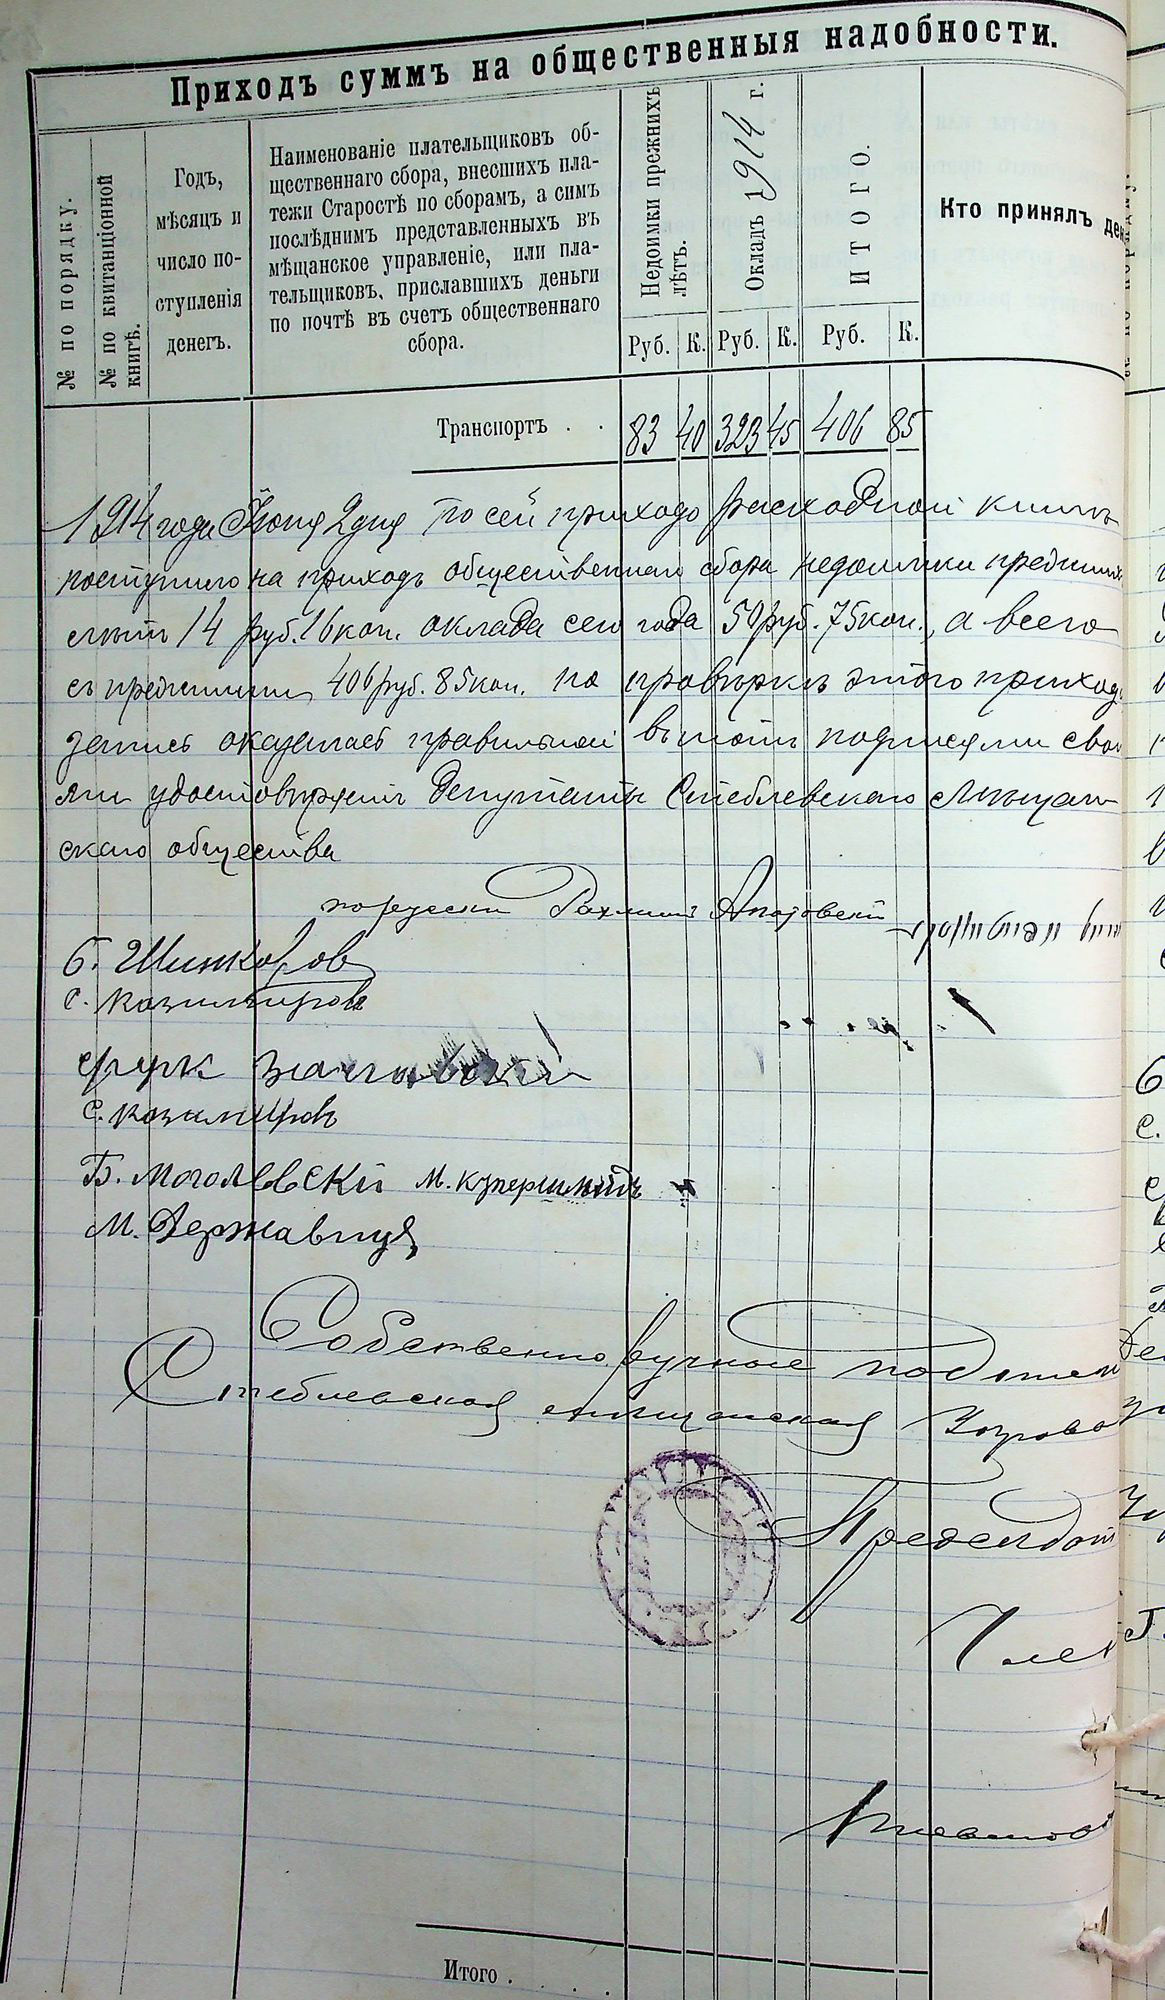 Приходъ суммъ на общественныя надобности.
№ по порядку.
№ по квитанціонной
книгѣ.
Годъ,
мѣсяцъ и
число по-
ступленія
денегъ.
Наименованіе плательщиковъ об-
щественнаго сбора, внесшихъ пла-
тежи Старостѣ по сборамъ, а симъ
послѣднимъ представленныхъ въ
мѣщанское управленіе, или пла-
тельщиковъ, приславшихъ деньги
по почтѣ въ счетъ общественнаго
сбора.
Недоимки прежнихъ
лѣтъ.
Окладъ 1914 г.
ИТОГО.
Кто принялъ де
Руб. К. Руб. К. Руб. К.
Транспортъ . . 83 40 323 45 406 85
1914 года Іюня 2 дня по сей приходо расходной книгѣ
поступило на приходъ общественнаго сбора недоимки прежнихъ
лѣтъ 14 руб. 16 коп. оклада сего года 50 руб. 75 коп., а всего
съ прежними 406 руб. 85 коп. по провѣркѣ этого прихода
запись оказалась правильной въ томъ подписями свои
ми удостовѣряютъ Депутаты Стеблевскаго Мѣщан
скаго общества
Б. Шинкаров
С. Козимиров
С. Козимиров
Б. Моголевскій М. Купершмидъ
М. Державица
Собственноручное подписи
Стеблевская мѣщанская Управа
Член
Итого . . .